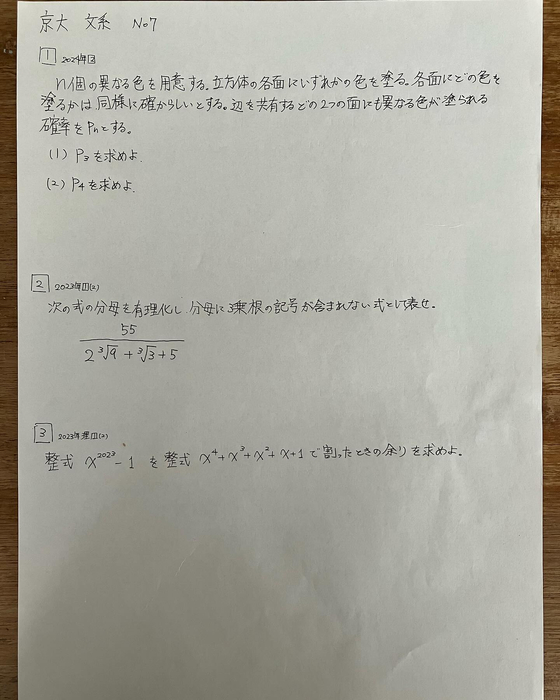 京大 文系 No7
1 2024年3
n個の異なる色を用意する。立方体の各面にいずれかの色を塗る。各面にどの色を
塗るかは同様に確からしいとする。辺を共有するどの2つの面にも異なる色が塗られる
確率をPnとする。
(1) P3を求めよ.
(2) P4を求めよ.
2 2023年1(2)
次の式の分母を有理化し、分母に3乗根の記号が含まれない式として表せ.
55
2∛9 + ∛3 + 5
3 2023年理1(2)
整式 x²⁰²³ - 1 を整式 x⁴+x³+x²+x+1で割ったときの余りを求めよ.